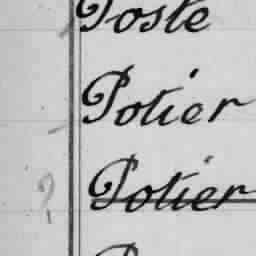 Poste
Potier
? Potier